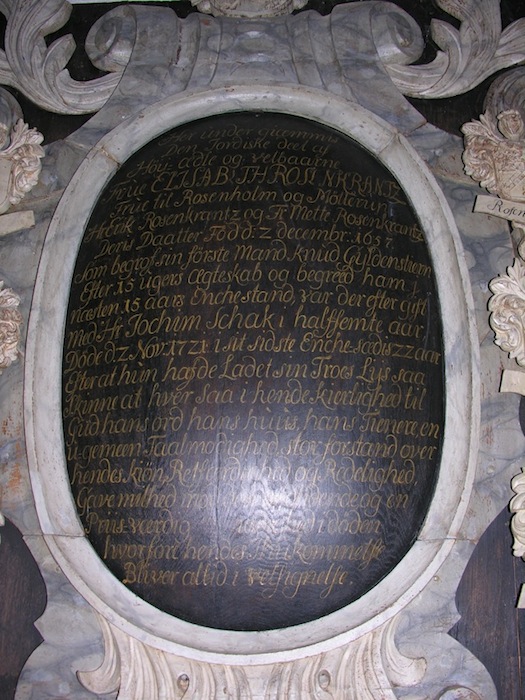 Her under giemmis
Den Jordiske deel af
Høy ædle og velbaarne
Frue ELISABETH ROSENKRANTZ
Frue til Rosenholm og Mollerup
Henrik Rosenkrantz og Fr Mette Rosenkrantz
Deris Daatter Fød d: 2 decembr: 1657
Som begrof sin første Mand Knud Gyldenstiern
Efter 15 ugers Ægteskab og begreed ham i
næsten 15 aars Enchestand, var der efter gift
med Hr Jochim Schak i halffemte aar
Døde d 2 Nov: 1721 i sit sidste Enche sæde 22 aar
Efter at hun hafde Ladet sin Troes Lys saa
Skinne at hver saa i hende kierlighed til
Gud hans ord hans huus, hans Tienere, en
u-gemeen Taalmodighed, stor forstand over
hendes kiøn, Retfærdighed og Redelighed,
Gavemildhed imod og en
Priis-værdig i døden
hvorfore hendes Ihukommelse
Bliver altid i velsignelse.